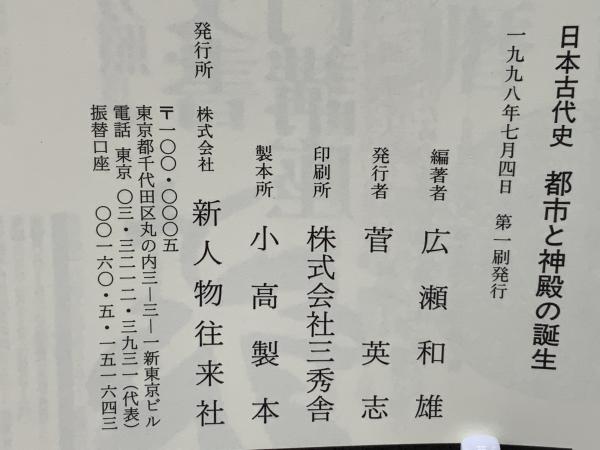 日本古代史　都市と神殿の誕生
一九九八年七月四日　第一刷発行
編著者　広瀬和雄
発行者　菅　英志
印刷所　株式会社三秀舎
製本所　小高製本
発行所　株式会社　新人物往来社
〒一〇〇・〇〇〇五
東京都千代田区丸の内三―三―一新東京ビル
電話　東京　〇三・三二一二・三九三一(代表)
振替口座　〇〇一六〇・五・一五一六四三